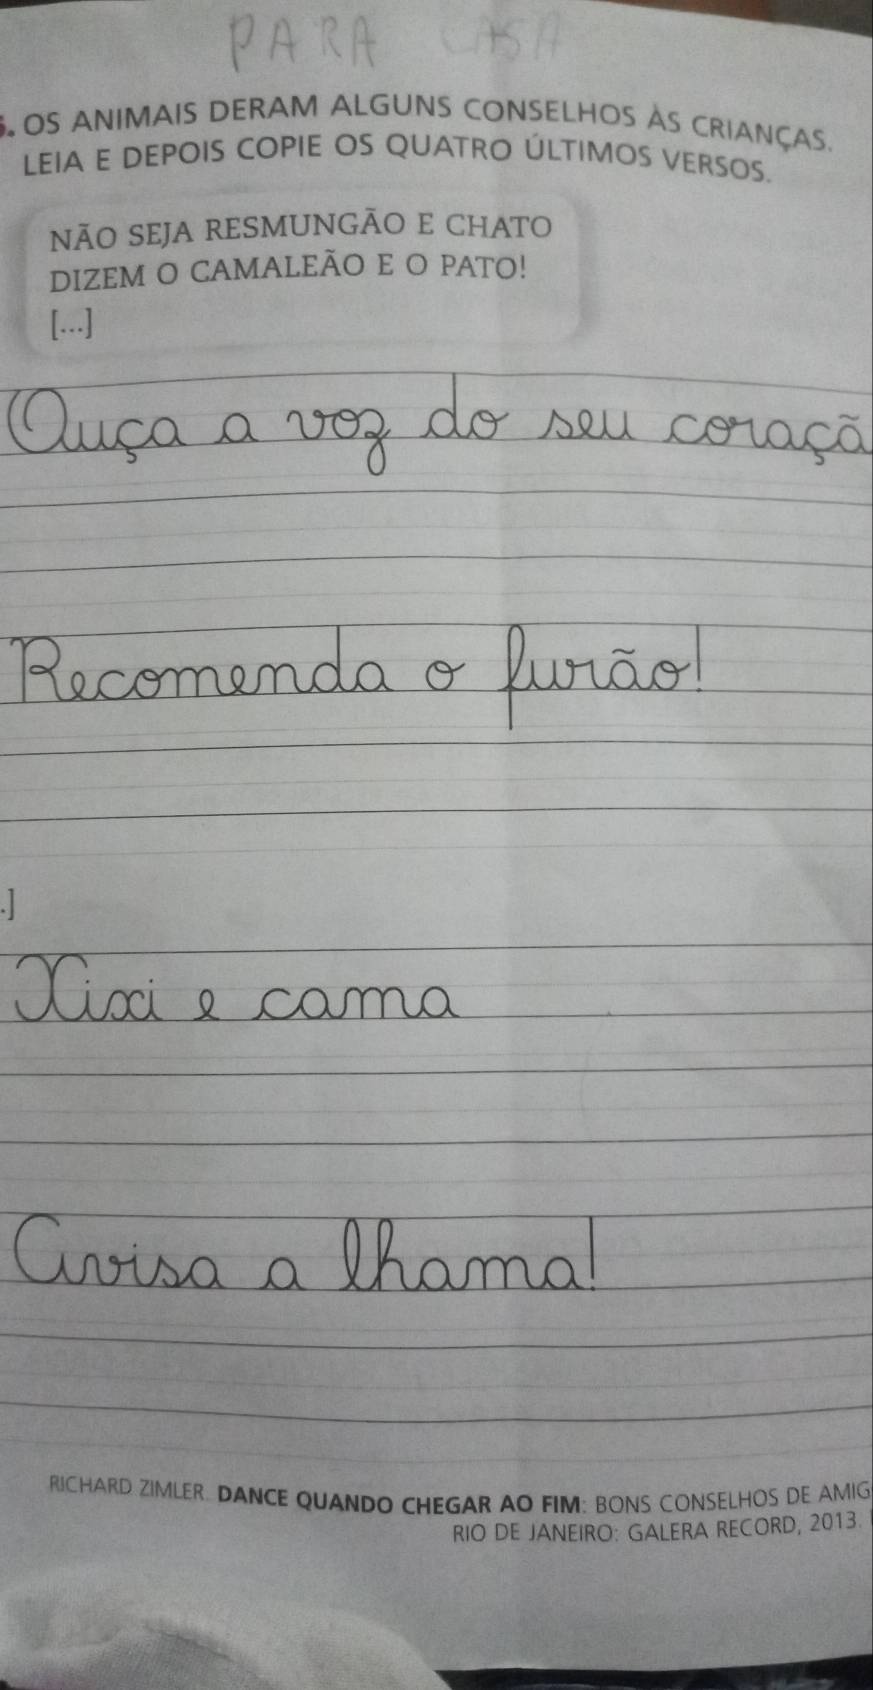 PARA CASA
6. OS ANIMAIS DERAM ALGUNS CONSELHOS ÀS CRIANÇAS.
LEIA E DEPOIS COPIE OS QUATRO ÚLTIMOS VERSOS.
NÃO SEJA RESMUNGÃO E CHATO
DIZEM O CAMALEÃO E O PATO!
[...]
Ouça a voz do seu coraçã
Recomenda o furão!
.]
Xixi e cama
Avisa a lhama!
RICHARD ZIMLER. DANCE QUANDO CHEGAR AO FIM: BONS CONSELHOS DE AMIG
RIO DE JANEIRO: GALERA RECORD, 2013.